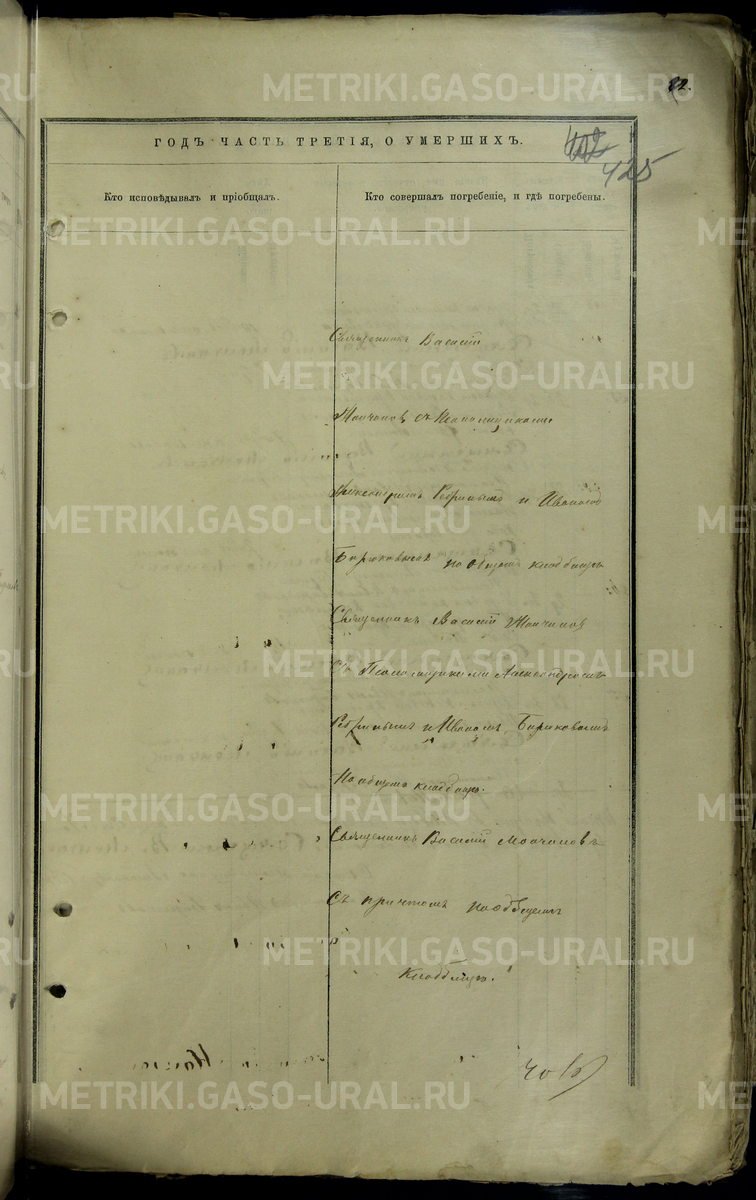 82.
ГОДЪ ЧАСТЬ ТРЕТІЯ, О УМЕРШИХЪ.
402
425
Кто исповѣдывалъ и пріобщалъ.
Кто совершалъ погребеніе, и гдѣ погребены.
Священникъ Василій
Молчановъ съ Псаломщиками
Александромъ и Иваномъ
Бирюковымъ на общемъ кладбищѣ
Священникъ Василій Молчановъ
Съ Псаломщиками Александромъ
и Иваномъ Бирюковымъ
На общемъ кладбищѣ.
Священникъ Василій Молчановъ
Съ причтомъ на общемъ
Кладбищѣ.
METRIKI.GASO-URAL.RU